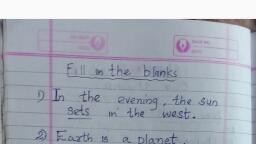 Fill in the blanks
1) In the evening, the sun
sets in the west.
2) Earth is a planet.